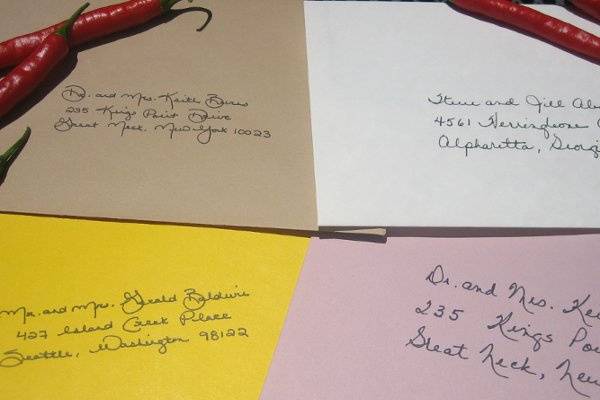 Dr. and Mrs. Keith Burns
235 Kings Point Drive
Great Neck, New York 10023
Steve and Jill
4561
Alpharetta, Georgia
Mr. and Mrs. Gerald Baldwin
427 Island Creek Place
Seattle, Washington 98122
Dr. and Mrs. Kei
235 Kings Poi
Great Neck, New